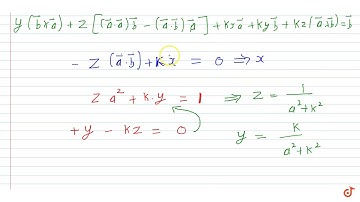 y(b⃗×a⃗)+z[(a⃗.a⃗)b⃗-(a⃗.b⃗)a⃗]+kxa⃗+kyb⃗+kz(a⃗×b⃗)=b⃗
- z(a⃗.b⃗)+kx = 0 ⇒ x
z a²+k.y = 1 ⇒ z = 1/(a²+k²)
+y - kz = 0 y = k/(a²+k²)